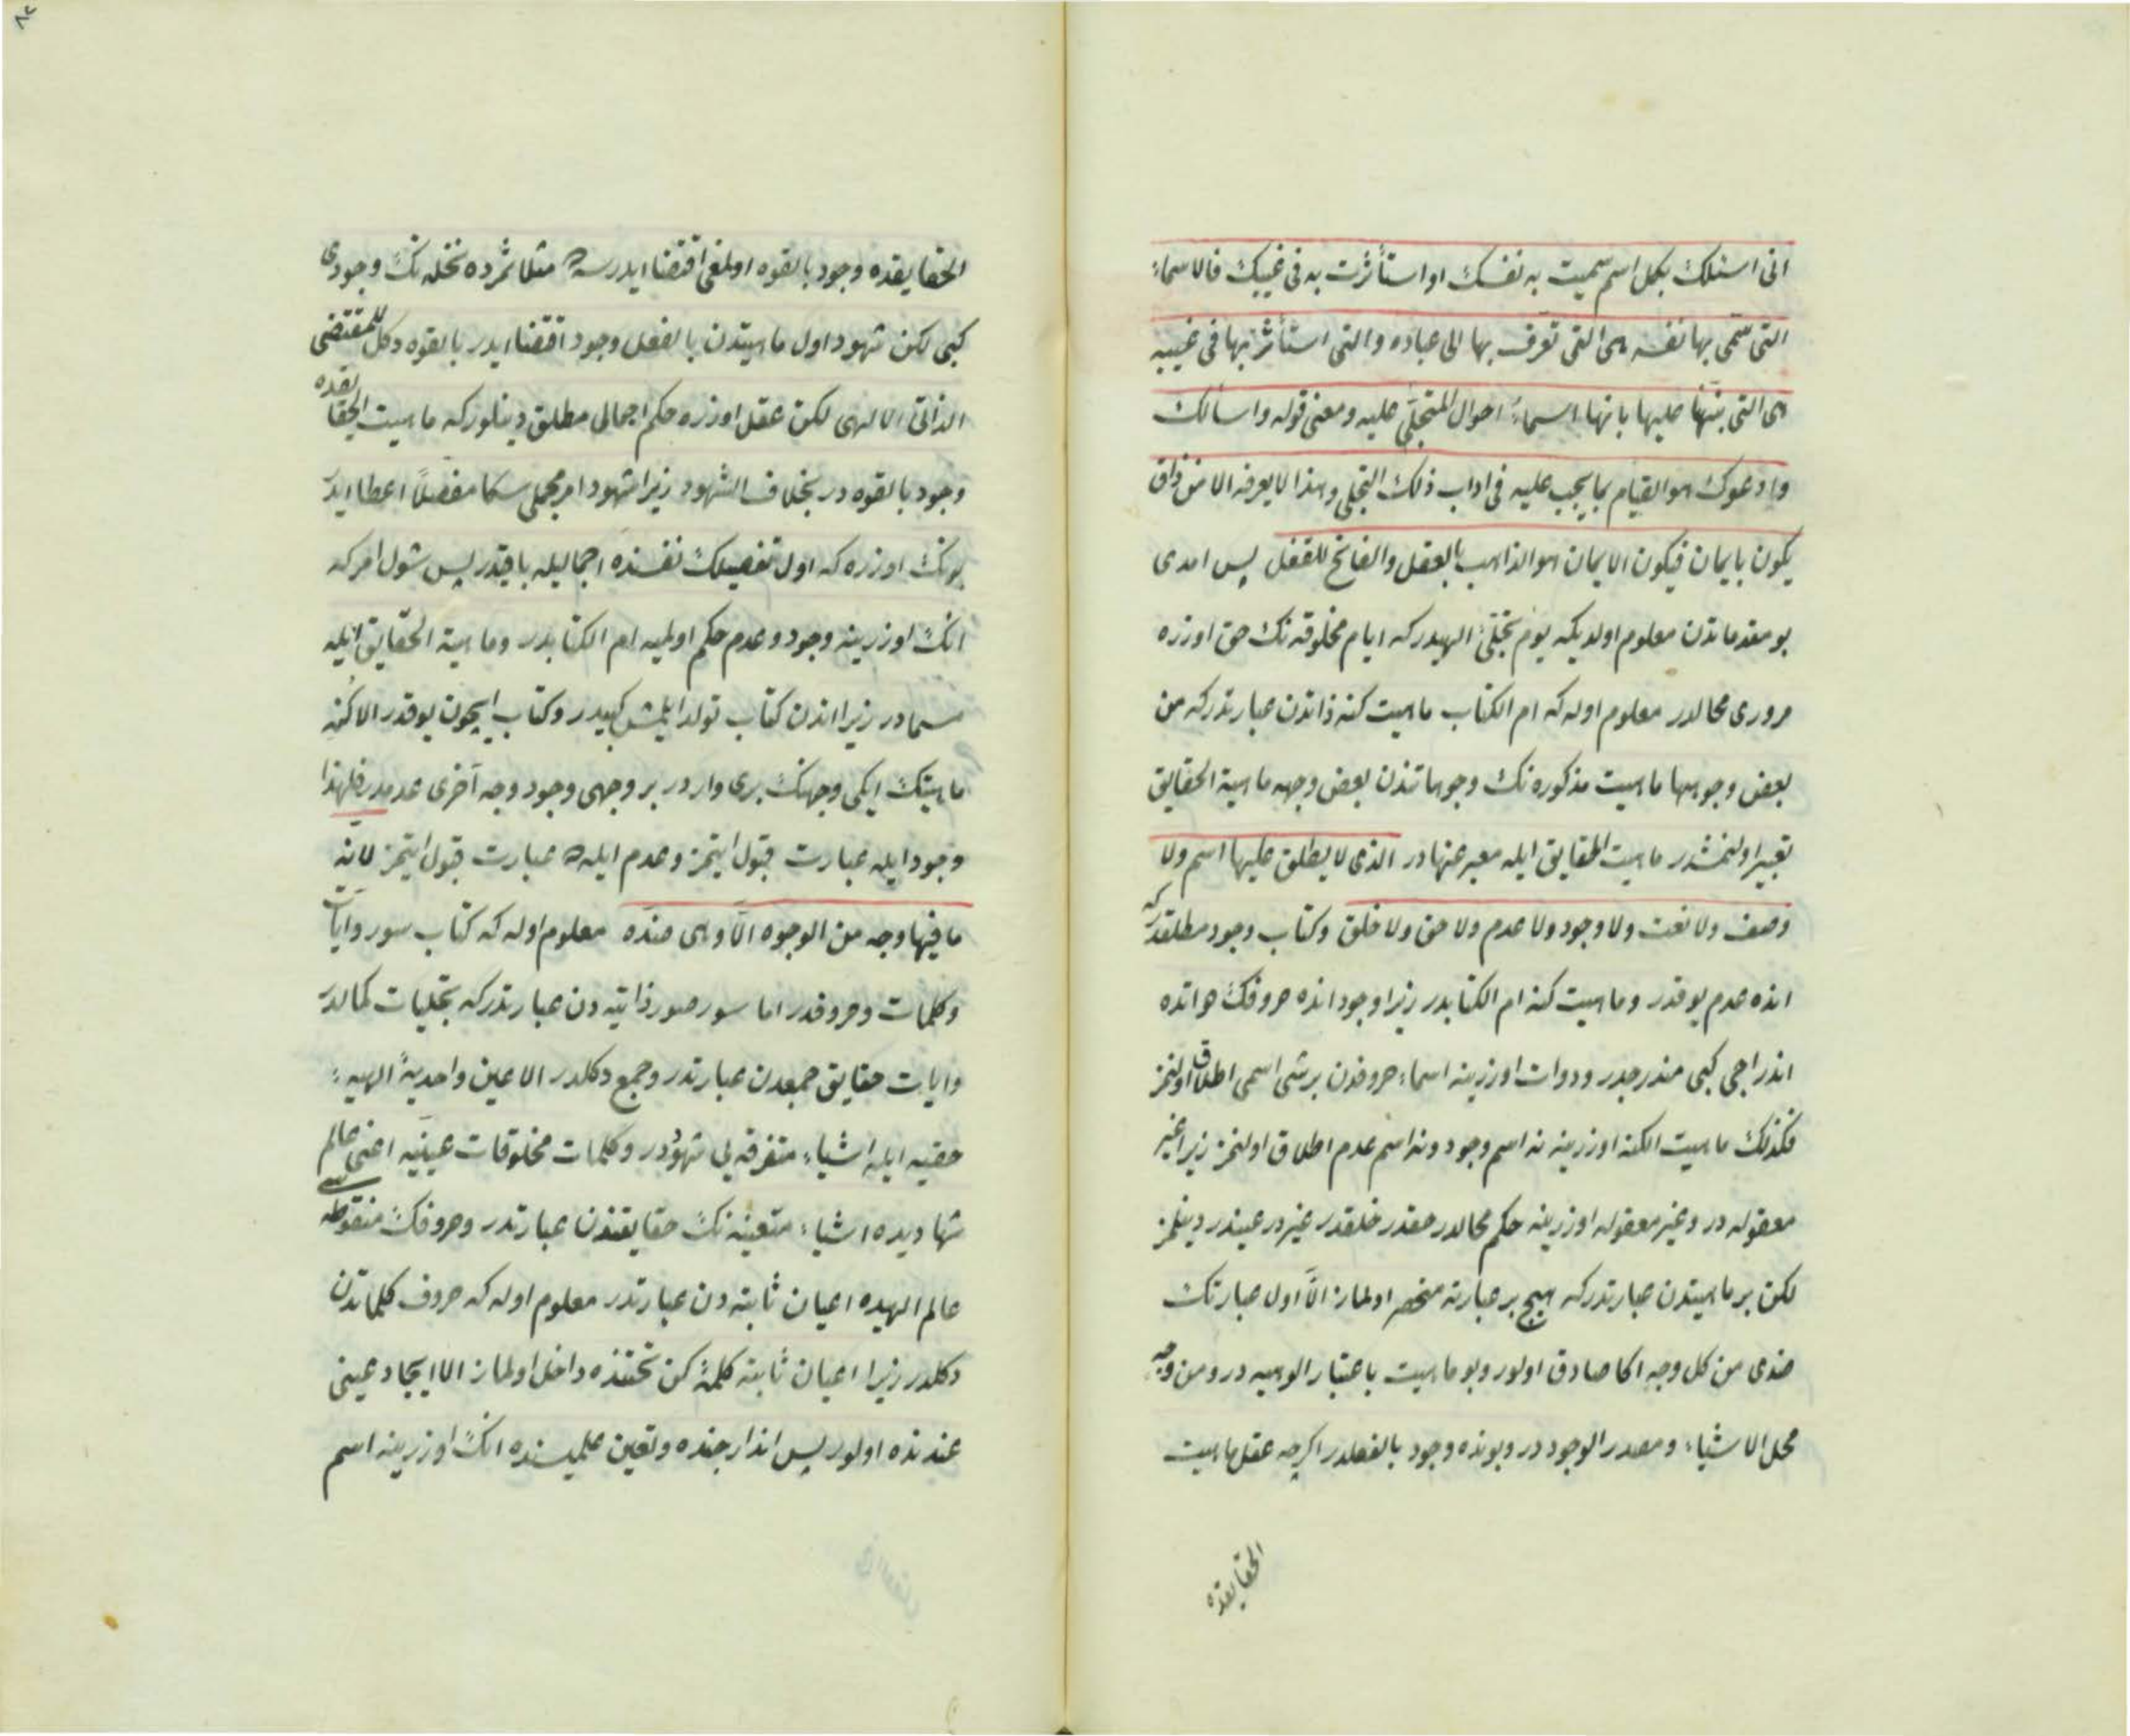 انى اسئلك بكل اسم سميت به نفسك او استأثرت به فى غيبك فالاسماء
التى سمى بها نفسه هى التى تعرف بها الى عباده والتى استأثر بها فى غيبه
هى التى نبّهنا عليها بانها اسماء احوال المتجلّى عليه ومعنى قوله واسألك
وادعوك هو القيام بما يجب عليه فى اداب ذلك التجلى وهذا لا يعرفه الا من ذاق
يكون بايمان فيكون الايمان هو الذاهب بالعقل والفاتح للقفل پس امدى
بو مقدماتدن معلوم اولديكه يوم تجلّئ الهيدر كه ايام مخلوقه نك حق اوزره
مرورى محالدر معلوم اوله كه ام الكتاب ماهيت كنه ذاتدن عبارتدر كه من
بعض وجوهها ماهيت مذكوره نك وجوهاتندن بعض وجهه ماهية الحقايق
تعبير اولنمشدر ماهيت الحقايق ايله معبر عنها در الذى لا يطلق عليها اسم ولا
وصف ولا نعت ولا وجود ولا عدم ولا حق ولا خلق وكتاب وجود مطلقدر كه
انده عدم يوقدر وماهيت كنه ام الكتابدر زيرا وجود انده حروفك دواتده
اندراجى كبى مندرجدر ودوات اوزرينه اسماء حروفدن برشى اسمى اطلاق اولنمز
فكذلك ماهيت الكنه اوزرينه نه اسم وجود ونه اسم عدم اطلاق اولنمز زيرا غير
معقوله در وغير معقوله اوزرينه حكم محالدر حقدر خلقدر غيردر عيندر دينلمز
لكن بر ماهيتدن عبارتدر كه هيچ بر عبارته منحصر اولماز الّا اول عبارتك
ضدى من كل وجه اكا صادق اولور وبو ماهيت باعتبار الوهيه در ومن وجه
محل الاشياء ومصدر الوجوددر وبونده وجود بالفعلدر اكرچه عقل ماهيت
الحقايقده
الحقايقده وجود بالقوه اولمغى اقتضا ايدرسه ده مثلا ثمرده نخله نك وجودى
كبى لكن شهود اول ماهيتدن بالفعل وجود اقتضا ايدر بالقوه دكل للمقتضى
الذاتى الالهى لكن عقل اوزره حكم اجمالى مطلق دينلور كه ماهيت الحقايقده
وجود بالقوه در بخلاف الشهود زيرا شهود امر مجملى سكا مفصلاً اعطا ايدر
بونك اوزره كه اول تفصيلك نفسنده اجماليله باقيدر پس شول امر كه
انك اوزرينه وجود وعدم حكم اولميه ام الكتابدر وماهية الحقايق ايله
مسمادر زيرا اندن كتاب تولد ايلمش كبيدر وكتاب ايچون يوقدر الا كنه
ماهيتك ايكى وجهنك برى واردر بر وجهى وجود وجه آخرى عدمدر فلهذا
وجود ايله عبارت قبول ايتمز وعدم ايله ده عبارت قبول ايتمز لانه
ما فيها وجه من الوجوه الّا وهى ضدّه معلوم اوله كه كتاب سور وآيات
وكلمات وحروفدر اما سور صور ذاتيه دن عبارتدر كه تجليات كمالدر
وايات حقايق جمعدن عبارتدر وجمع دكلدر الا عين واحدية الهيه
حقيه ايله اشياء متفرقه لى شهودر وكلمات مخلوقات عينيه اعنى عالم
شهاديده اشياء متعينه نك حقايقندن عبارتدر وحروفك منقوطه سى
عالم الهيده اعيان ثابته دن عبارتدر معلوم اوله كه حروف كلماتدن
دكلدر زيرا اعيان ثابته كلمهٔ كن تحتنده داخل اولماز الا ايجاد عينى
عندنده اولور پس اندراجنده وتعين علميسنده انك اوزرينه اسم